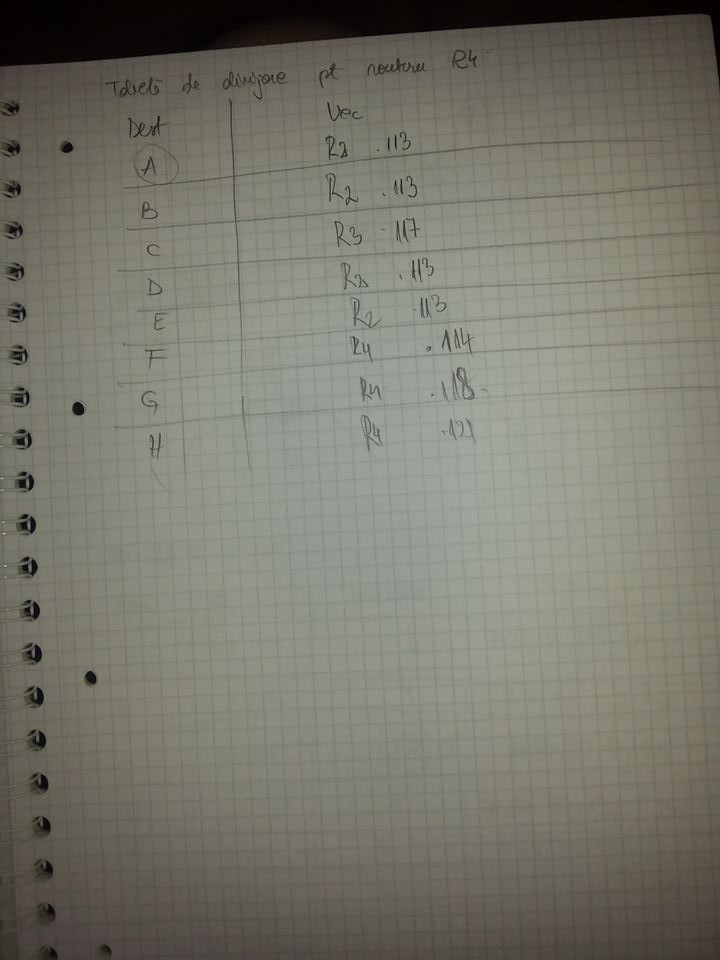 Tabelă de dirijare pt routeru R4
Dest Vec
A R2 .113
B R2 .113
C R3 .117
D R2 .113
E R2 .113
F R4 .114
G R4 .118
H R4 .121